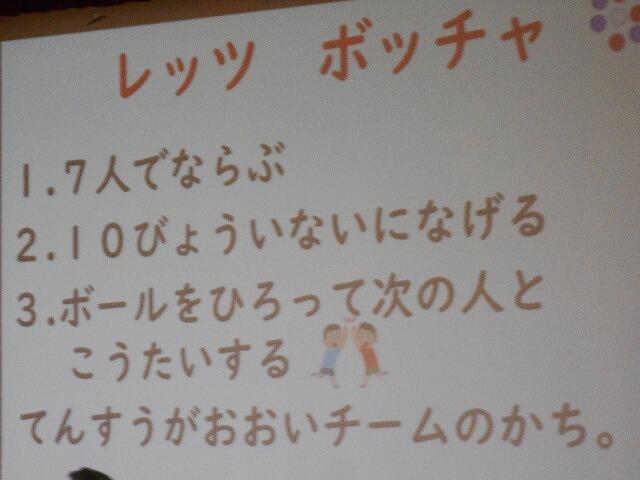 レッツ　ボッチャ
1.7人でならぶ
2.10びょういないになげる
3.ボールをひろって次の人と
こうたいする
てんすうがおおいチームのかち。